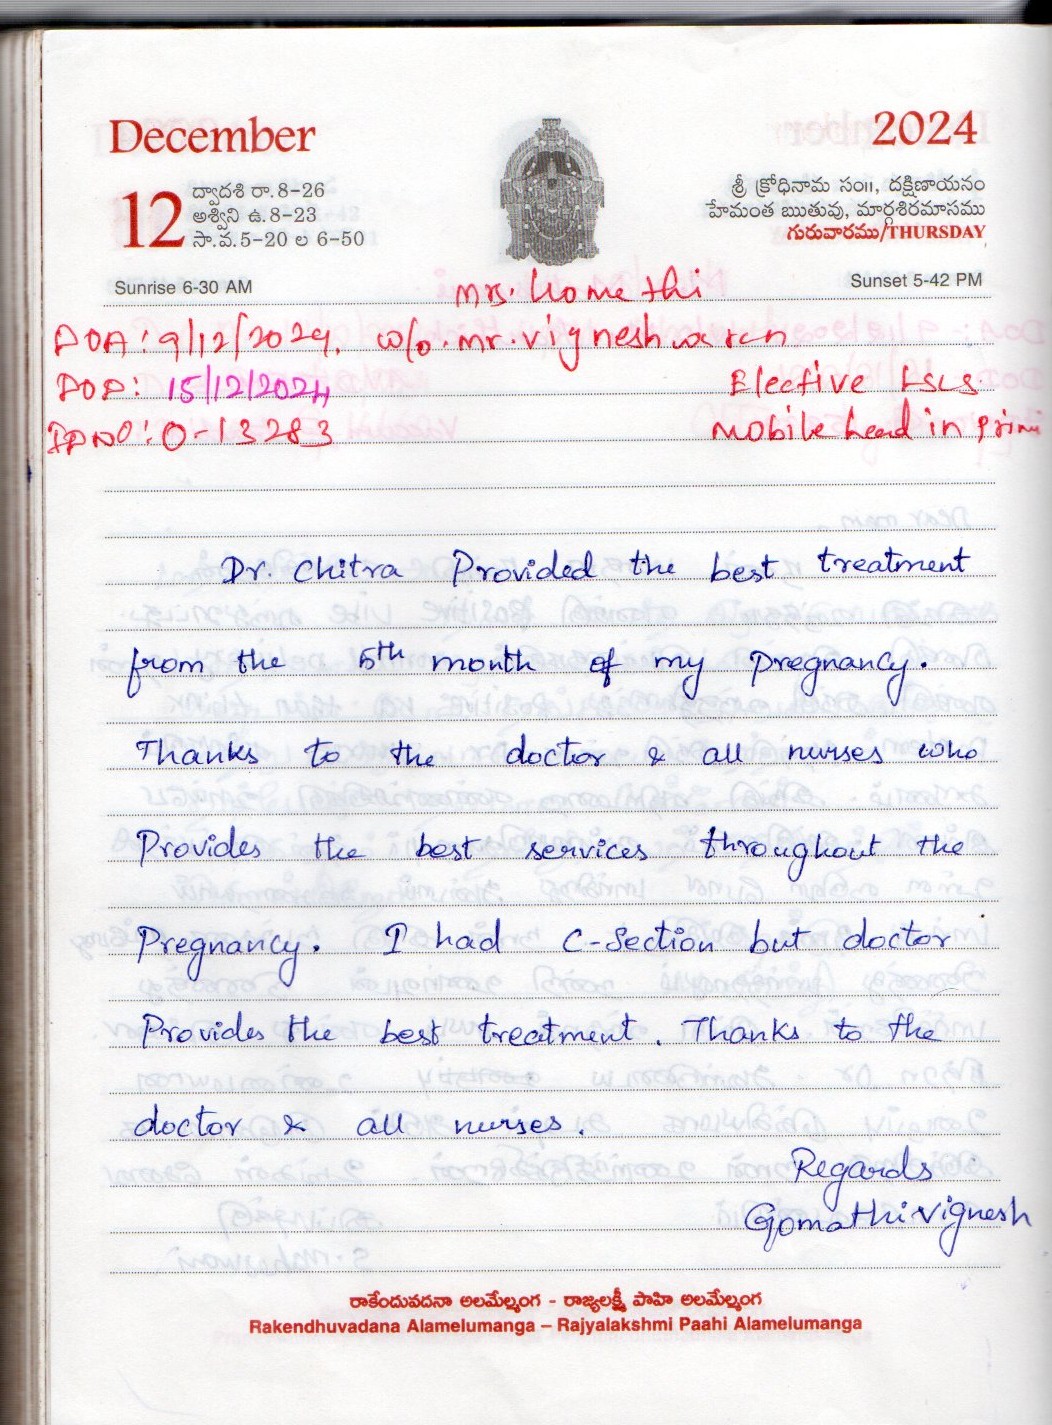 December
2024
12
ద్వాదశి రా. 8-26
అశ్విని ఉ. 8-23
సా.వ. 5-20 ల 6-50
శ్రీ క్రోధినామ సం౹౹, దక్షిణాయనం
హేమంత ఋతువు, మార్గశిరమాసము
గురువారము/THURSDAY
Sunrise 6-30 AM
Sunset 5-42 PM
Mrs. Gomathi
DOA: 9/12/2024. w/o. mr. vigneshwaren
DOD: 15/12/2024 Elective LSCS
IPNO: O-13283 Mobile head in prim
Dr. Chitra Provided the best treatment
from the 5th month of my pregnancy.
Thanks to the doctor & all nurses who
Provides the best services throughout the
Pregnancy. I had C-Section but doctor
Provides the best treatment. Thanks to the
doctor & all nurses.
Regards
Gomathivignesh
రాకేందువదనా అలమేల్మంగ - రాజ్యలక్ష్మీ పాహి అలమేల్మంగ
Rakendhuvadana Alamelumanga – Rajyalakshmi Paahi Alamelumanga